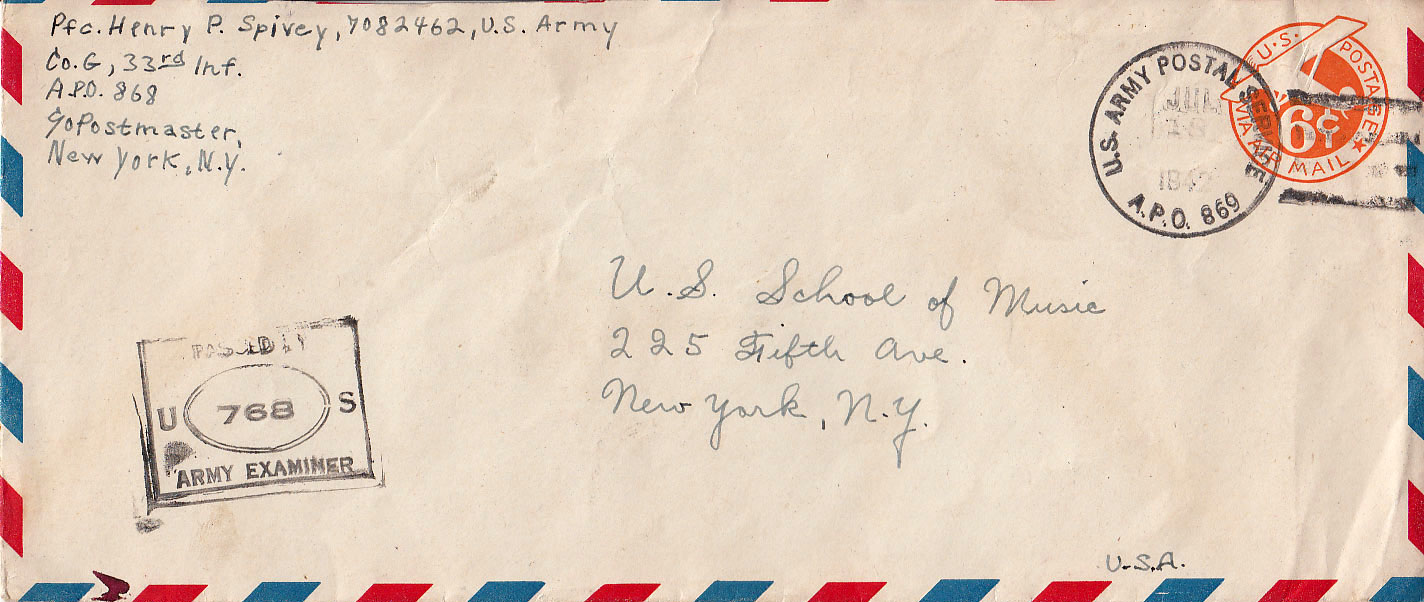 Pfc. Henry P. Spivey, 7082462, U.S. Army
Co. G, 33rd Inf.
A.P.O. 868
c/o Postmaster,
New York, N.Y.
U.S. ARMY POSTAL SERVICE
JUL
A.P.O. 869
U.S. POSTAGE
6¢
AIR MAIL
U.S. School of Music
225 Fifth Ave.
New York, N.Y.
PASSED BY
U 768 S
ARMY EXAMINER
U.S.A.